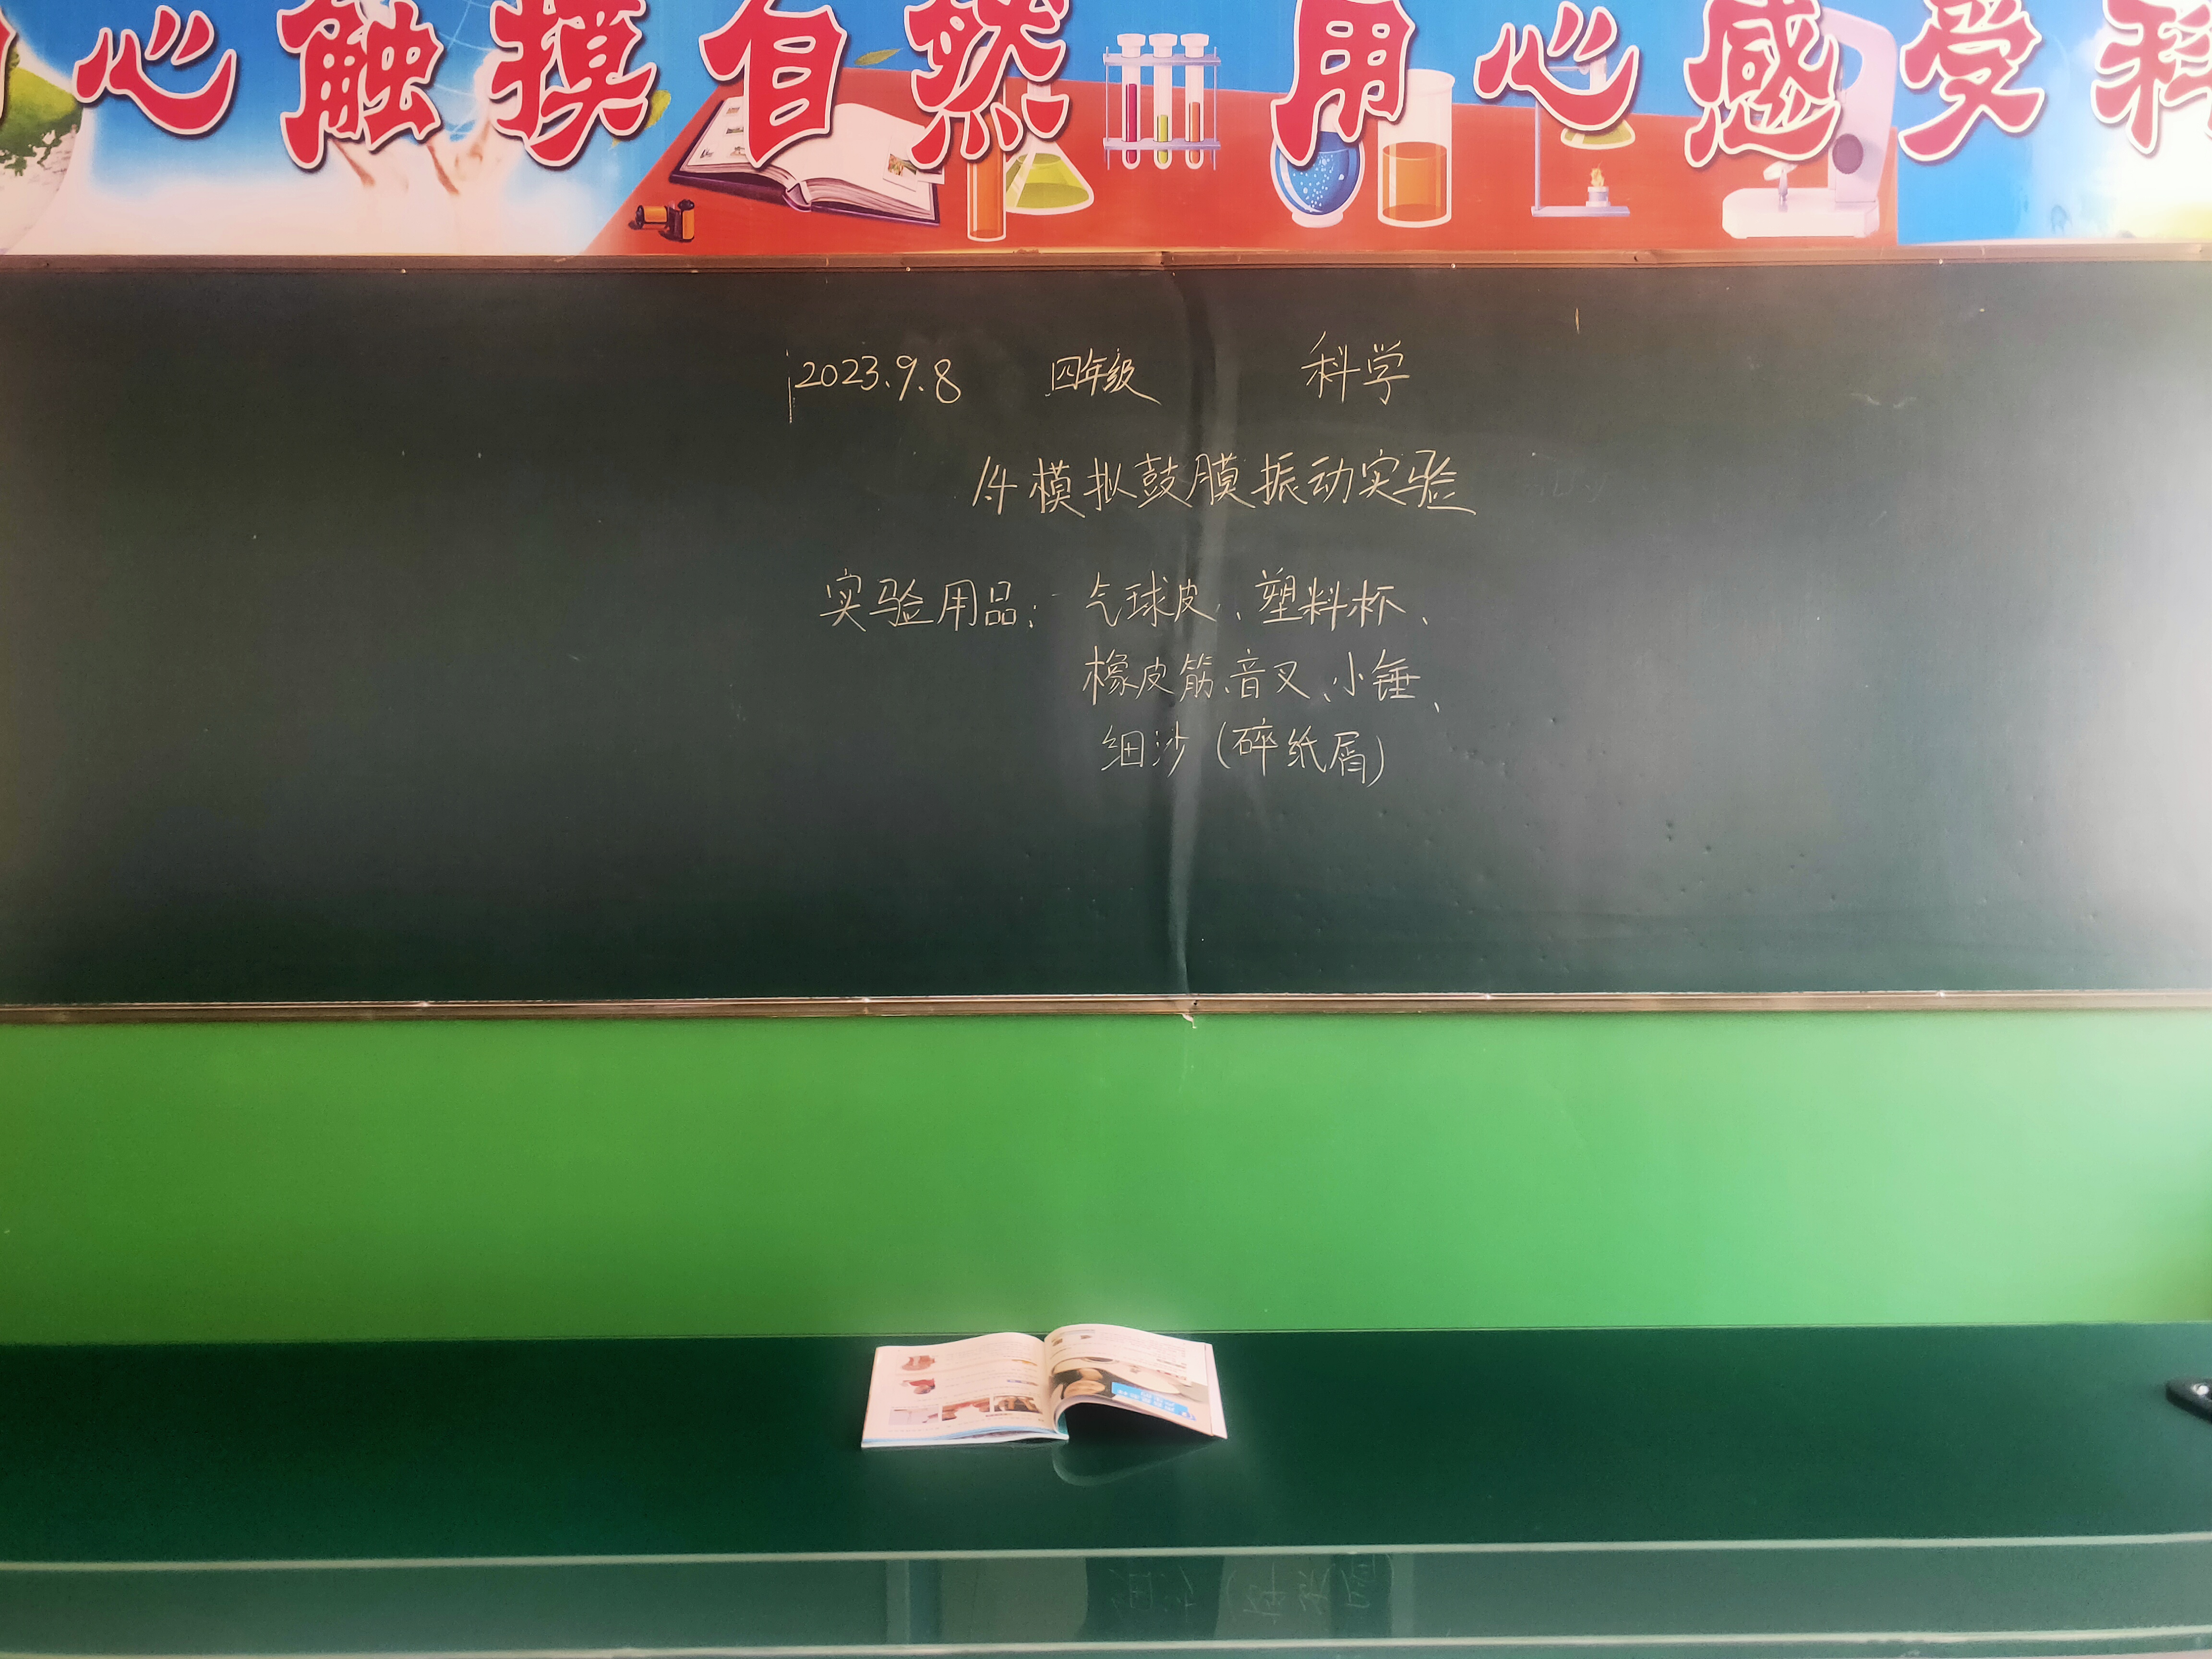 心触摸自然 用心感受科
2023.9.8 四年级 科学
1.4模拟鼓膜振动实验
实验用品：气球皮、塑料杯、
橡皮筋、音叉、小锤、
细沙（碎纸屑）